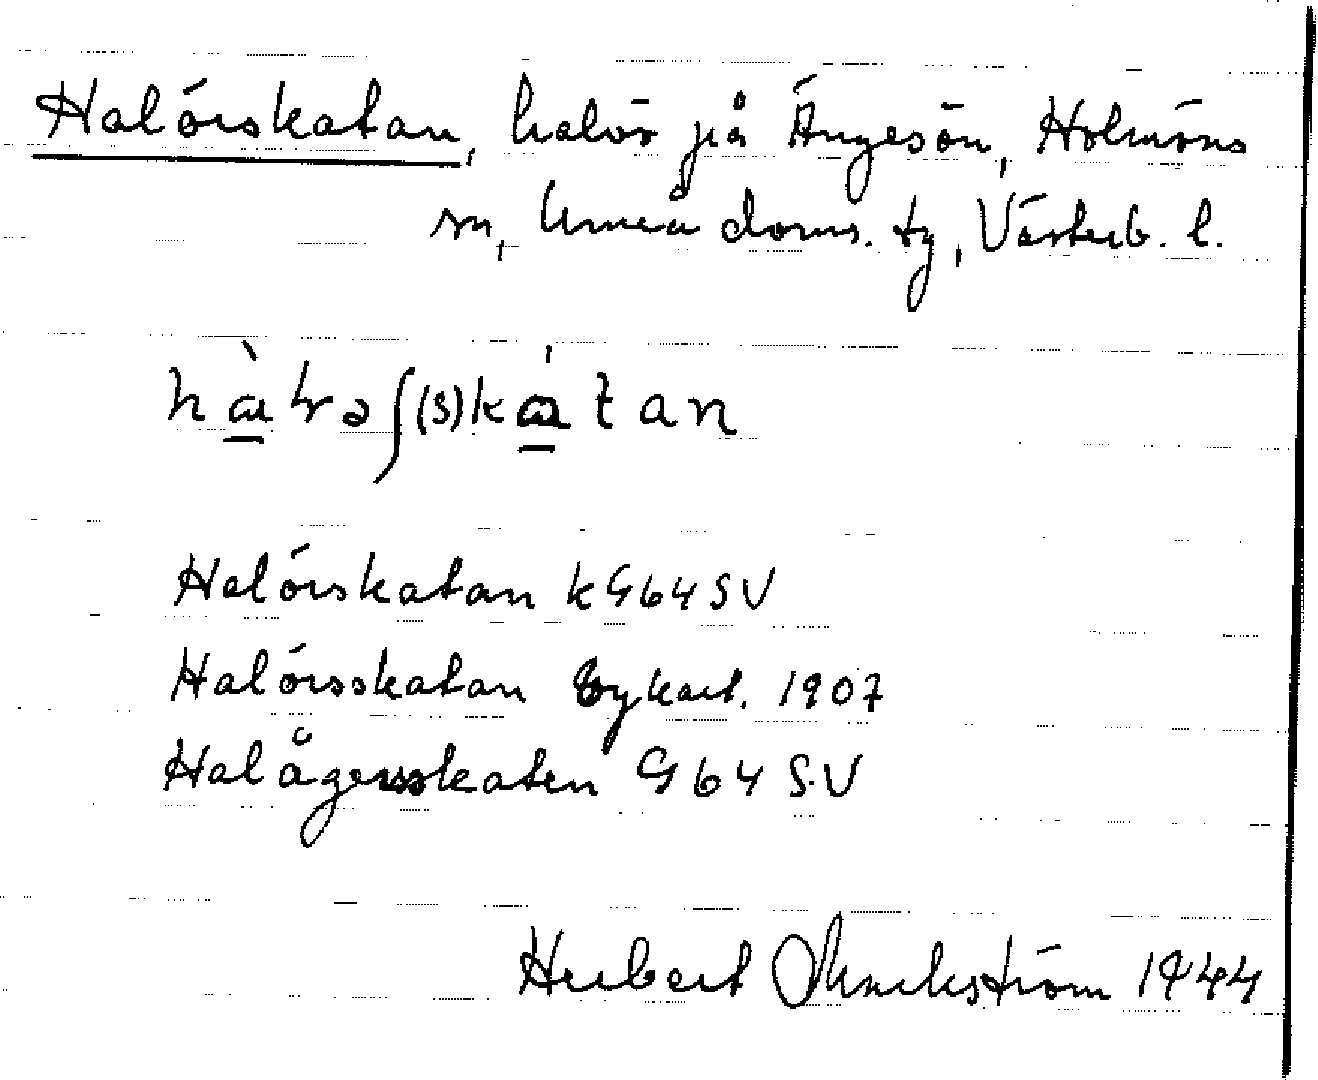 Halörskatan, halvö på Ängesön, Holmöns
sn, Umeå doms. tg, Västerb. l.
Halörskatan kG64SV
Halörsskatan Bykart. 1907
Halågersskaten G64 SV
Herbert 1944